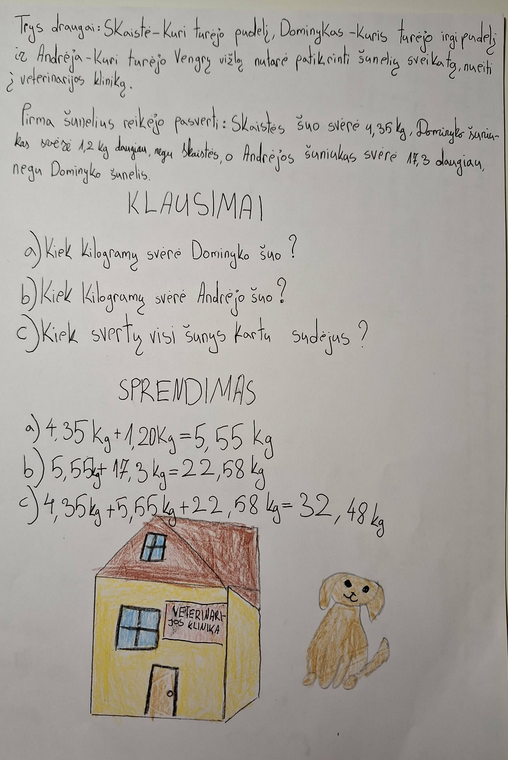 Trys draugai: Skaistė-Kuri turėjo pudelį, Dominykas-Kuris turėjo irgi pudelį
ir Andrėja-Kuri turėjo Vengrų vižlą nutarė patikrinti šunelių sveikatą, nueiti
į veterinarijos kliniką.
Pirma šunelius reikėjo pasverti: Skaistės šuo svėrė 4,35 kg, Dominyko šuniu-
kas svėrė 1,2 kg daugiau, negu Skaistės, o Andrėjos šuniukas svėrė 17,3 daugiau,
negu Dominyko šunelis.
KLAUSIMAI
a) Kiek kilogramų svėrė Dominyko šuo?
b) Kiek Kilogramų svėrė Andrėjo šuo?
c) Kiek svertų visi šunys kartu sudėjus?
SPRENDIMAS
a) 4,35 kg + 1,20 Kg = 5,55 kg
b) 5,55kg + 17,3 kg = 22,58 kg
c) 4,35kg + 5,55kg + 22,58 kg = 32,48 kg
VETERINARI-
JOS KLINIKA